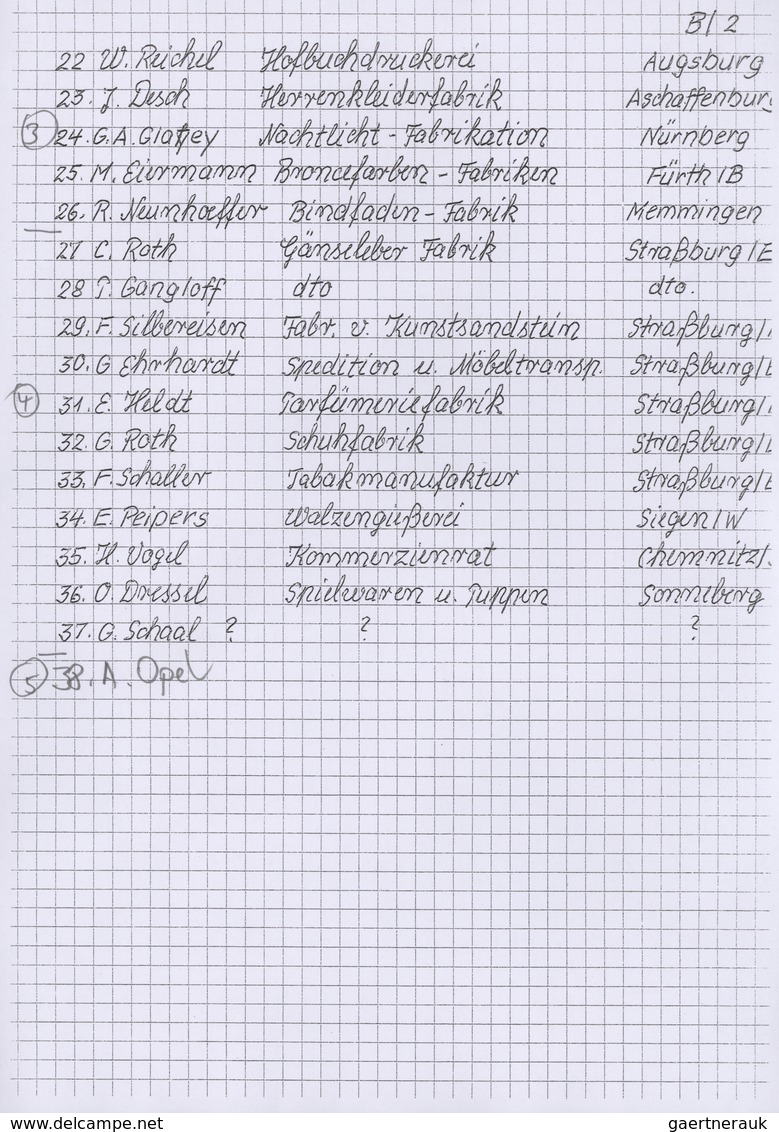 B/2
22 W. Reichel Hofbuchdruckerei Augsburg
23. J. Desch Herrenkleiderfabrik Aschaffenburg
③ 24. G. A. Glafey Nachtlicht - Fabrikation Nürnberg
25. M. Eiermann Broncefarben - Fabriken Fürth / B
26. R. Neunhoeffer Bindfaden - Fabrik Memmingen
27 C. Roth Gänseleber Fabrik Straßburg / E
28 P. Gangloff dto dto.
29. F. Silbereisen Fabr. v. Kunstsandstein Straßburg /
30. G Ehrhardt Spedition u. Möbeltransp. Straßburg /
④ 31. E. Heldt Parfümeriefabrik Straßburg /
32. G. Roth Schuhfabrik Straßburg /
33. F. Schaller Tabakmanufaktur Straßburg /
34. E. Peipers Walzengießerei Siegen / W
35. H. Vogel Kommerzienrat Chemnitz /
36. O. Dressel Spielwaren u. Puppen Sonneberg
37. G. Schaal ? ? ?
⑤ 38. A. Opel
www.delcampe.net gaertnerauk